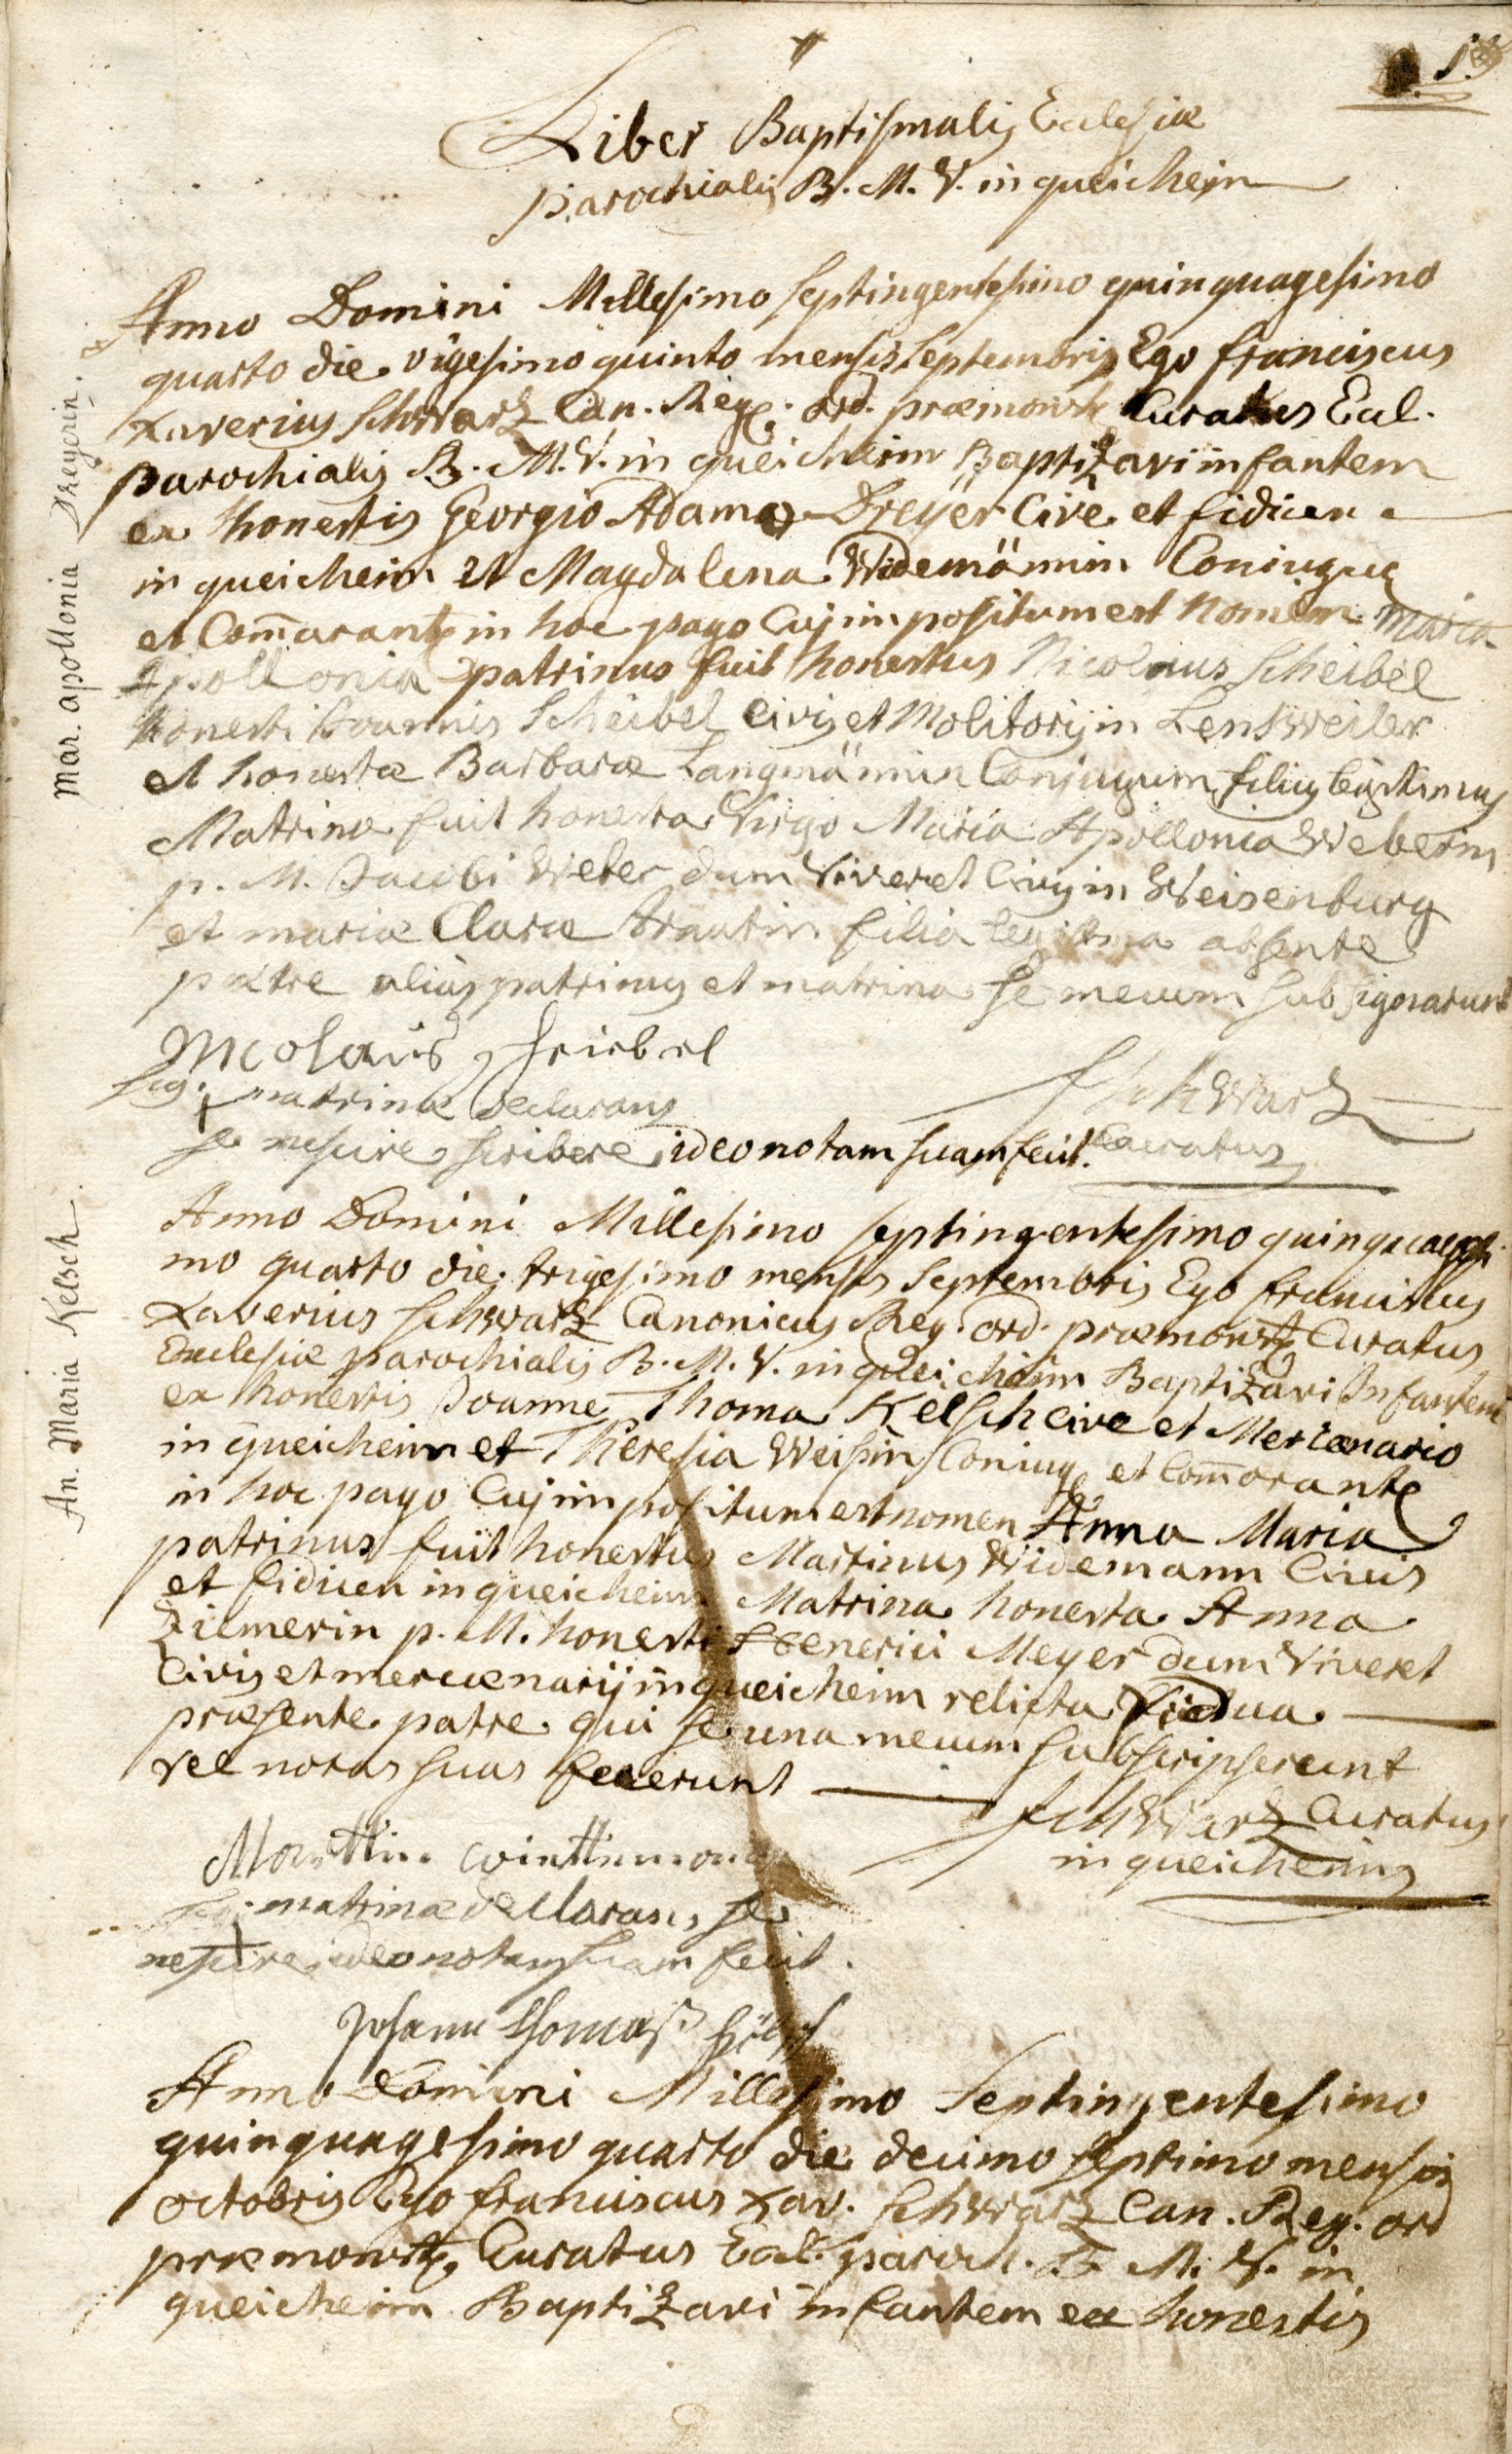 Liber Baptismalis Eclesiæ
parochialis B. M. V. in queicheim
Mar. apollonia Dreyerin.
Anno Domini Millesimo septingentesimo quinquagesimo
quarto die vigesimo quinto mensis Septembris Ego franciscus
Xaverius Schwartz Can. Reg. ord. præmonst. Curatus Eccl.
parochialis B. M. V. in queicheim Baptizavi infantem
ex honestis Georgio Adamo Dreyer Cive et fidicen
in queicheim et Magdalena Widemännin Coniuge
et Com̄orante in hoc pago Cuj impositum est Nomen Maria
Apollonia patrinus fuit honestus Nicolaus Scheibel
honesti Joannis Scheibel Civis et Molitoris in Lensweiler
et honestæ Barbaræ Langmännin Conjugum filius legitimus
Matrina fuit honesta Virgo Maria Apollonia Weberin
p. M. Jacobi Weber dum Viveret Civis in Weisenburg
et mariæ Claræ trautin filia legitima absente
patre alias patrinus et matrina se mecum subsignarunt
Nicolaus Scheibel
sig. matrinæ declarans
Schwartz
se nescire scribere ideo notam suam fecit.
Curatus
An. Maria Kelsch.
Anno Domini Millesimo septingentesimo quinquagesi
mo quarto die trigesimo mensis Septembris Ego franciscus
Xaverius Schwartz Canonicus Reg. ord. præmonst. Curatus
Ecclesiæ parochialis B. M. V. in queicheim Baptizavi Infantem
ex honestis Joanne Thoma Kelsch cive et Mercenario
in queicheim et Theresia Weisin Coniuge et Com̄orante
in hoc pago Cuj impositum est nomen Anna Maria
patrinus fuit honestus Martinus Widemann Civis
et fidicen in queicheim Matrina honesta Anna
Ziemerin p. M. honesti Henerici Meyer dum Viveret
Civis et mercenarij in queicheim relicta Vidua
præsente patre qui se una mecum subscripserunt
vel notas suas fecerunt
Schwartz Curatus
in queicheim
Marttin
sig. matrinæ declarans se
nescire ideo notam suam fecit.
Johann Thomaß
Anno Domini Millesimo Septingentesimo
quinquagesimo quarto die decimo septimo mensis
octobris Ego franciscus Xav. Schwartz Can. Reg. ord
præmonst. Curatus Eccl. paroch. B. M. V. in
queicheim Baptizavi infantem ex honestis